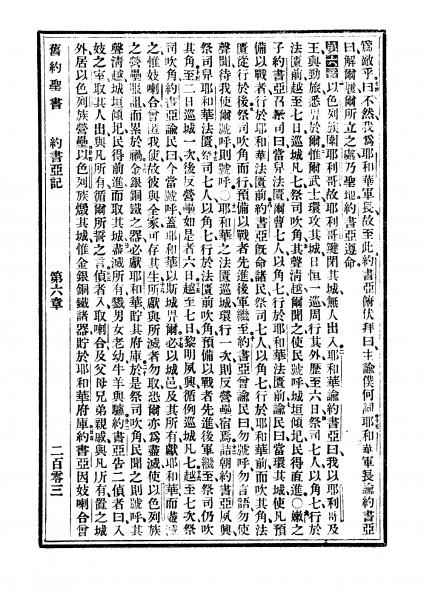 爲敵乎曰不然我爲耶和華軍長故至此約書亞俯伏拜曰主諭僕何詞耶和華軍長諭約書亞
曰解爾履爾所立之處乃聖地約書亞遵命
第六章以色列族圍耶利哥故耶利哥鍵閉其城無人出入耶和華諭約書亞曰我以耶利哥及
王與勁旅悉畀於爾惟爾武士環攻其城日恒一巡周行其外歷至六日祭司七人以角七行於
法匱前越至七日巡城凡七祭司吹角其聲清越爾聞之使民號呼城垣傾圮民得直進○嫩之
子約書亞召祭司曰當舁法匱爾曹七人以角七行於耶和華法匱前諭民曰當環其城使凡預
備以戰者行於耶和華法匱前約書亞旣命諸民祭司七人以角七行於耶和華前而吹其角法
匱從行於後祭司吹角而行預備以戰者先進後軍繼至約書亞曾諭民曰勿號呼勿言語勿使
聲聞待我使爾號呼則號呼○耶和華之法匱巡城環行一次則反營壘宿焉詰朝約書亞夙興
祭司舁耶和華法匱祭司七人以角七行於法匱前吹角預備以戰者先進後軍繼至祭司仍吹
其角至二日巡城一次後反營壘如是者六日越至七日黎明夙興循例巡城凡七越至七次祭
司吹角約書亞諭民曰今當號呼蓋耶和華以斯城畀爾必以城邑及其所有獻耶和華而盡滅
之惟妓喇合曾匿我使故彼與全家可存其生所獻與所滅者勿取恐爾亦爲盡滅使以色列族
之營壘服詛而累於禍金銀銅鐵之器必獻耶和華貯其府庫於是祭司吹角民聞之則號呼其
聲清越城垣傾圮民得前進而取其城盡滅所有戮男女老幼牛羊與驢約書亞告二偵者曰入
妓之室取其人出與凡所有循爾所誓之言偵者入取喇合及父母兄弟親戚與凡所有置之城
外居以色列族營壘以色列族燬其城惟金銀銅鐵諸器貯於耶和華府庫約書亞因妓喇合曾
舊約聖書 約書亞記 第六章 二百零三